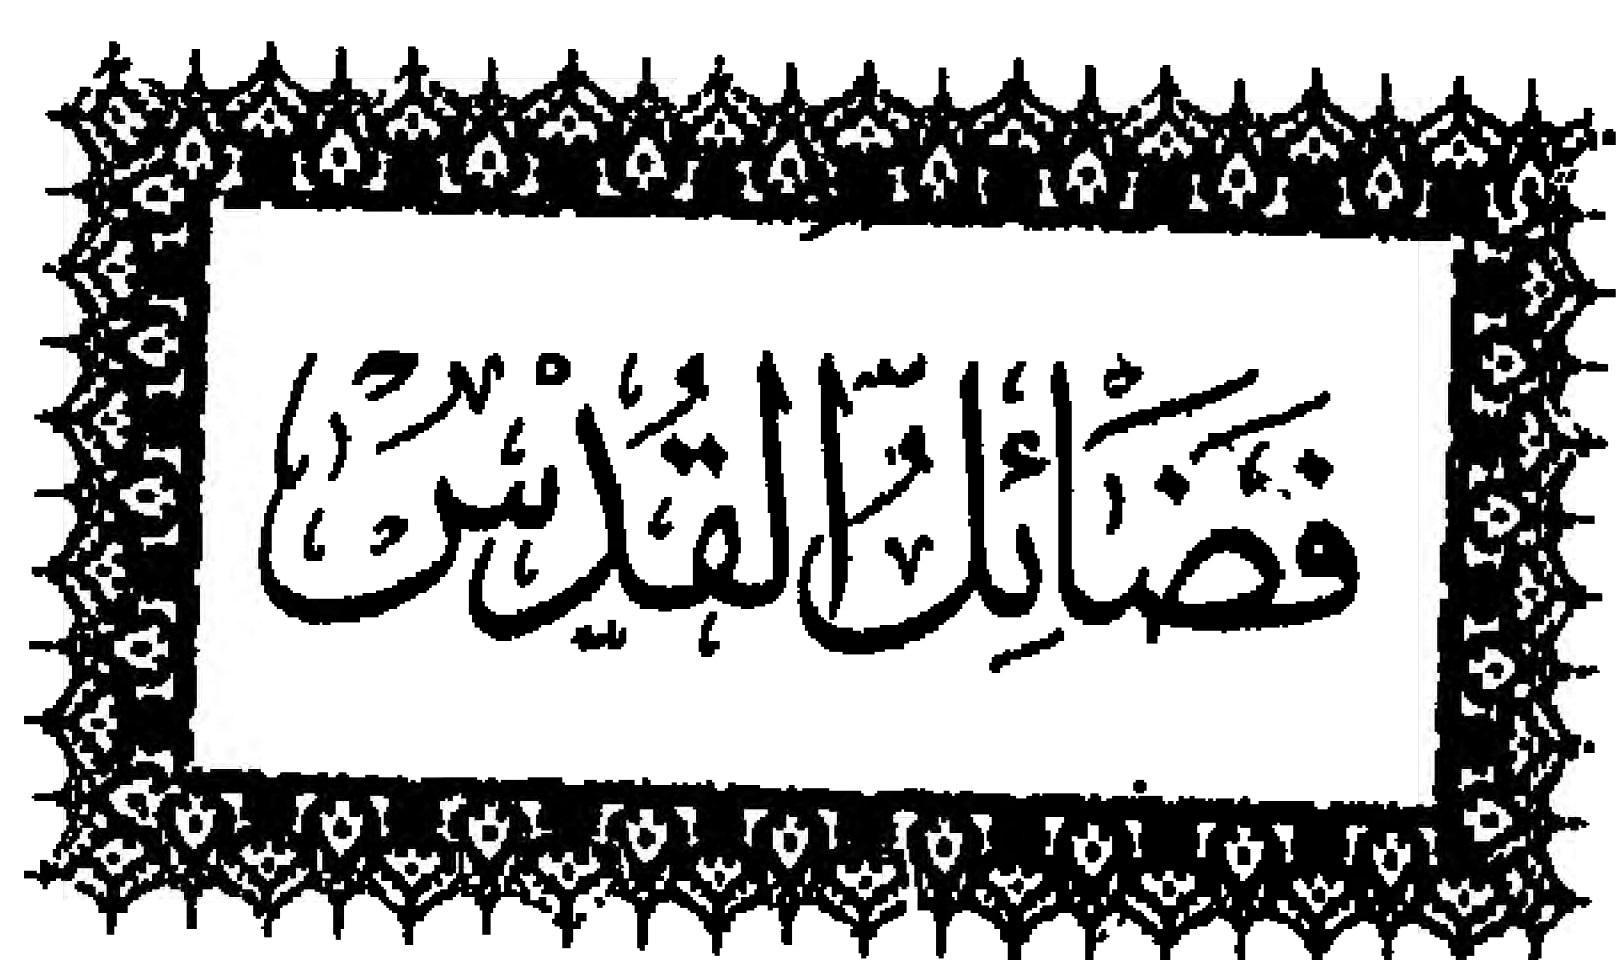 فَضَائِلُ القُدْسْ